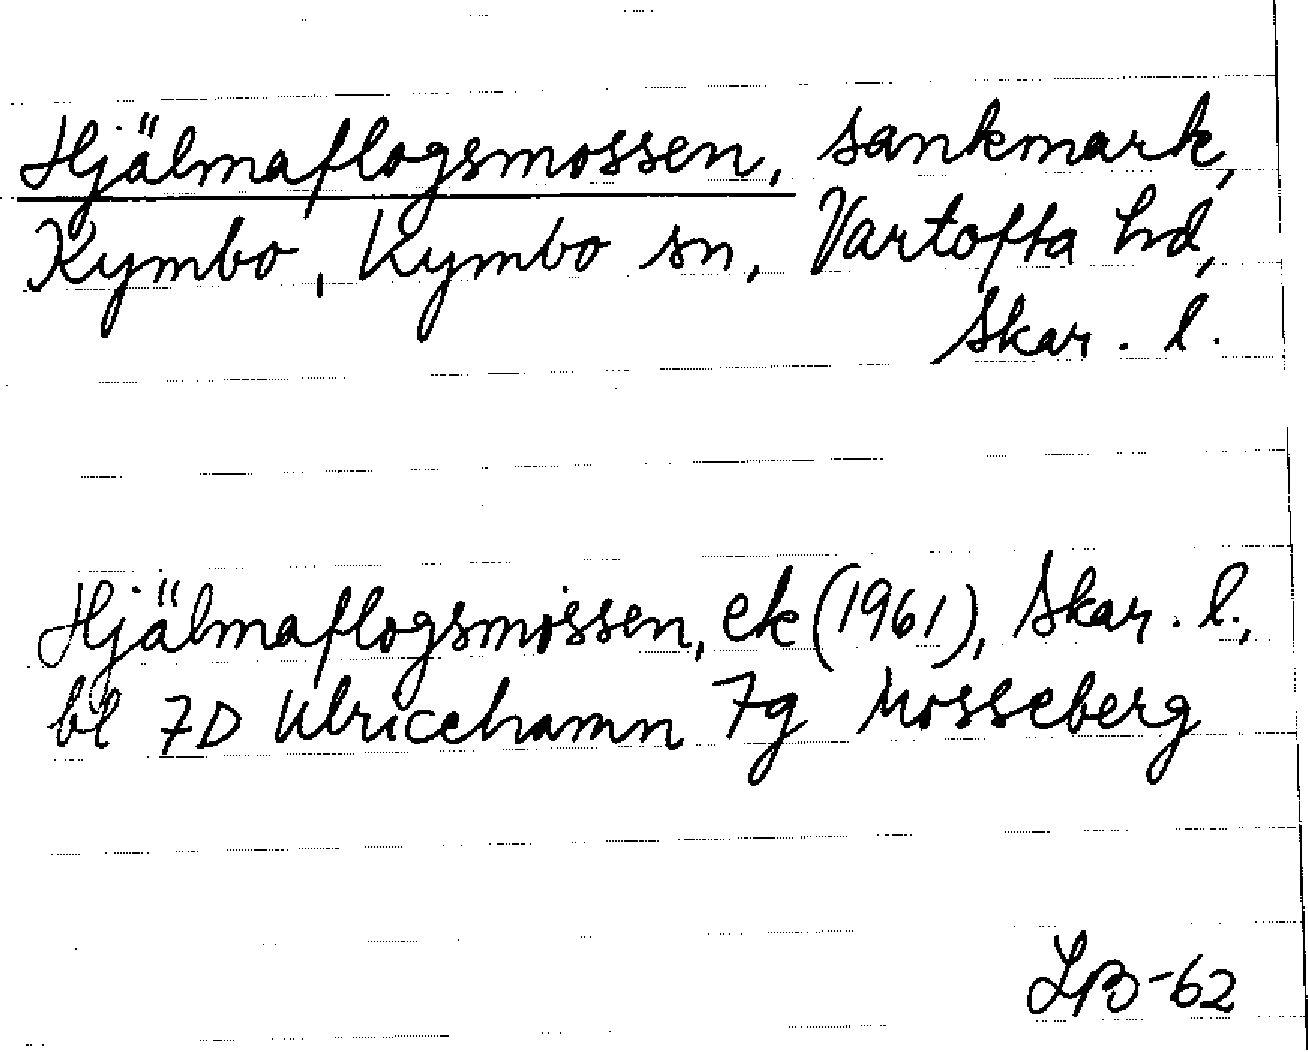 Hjälmaflogsmossen, sankmark,
Kymbo, Kymbo sn, Vartofta hd,
Skar. l.
Hjälmaflogsmossen, ek (1961), Skar. l.,
bl 7D Ulricehamn 7g Mosseberg
LB-62